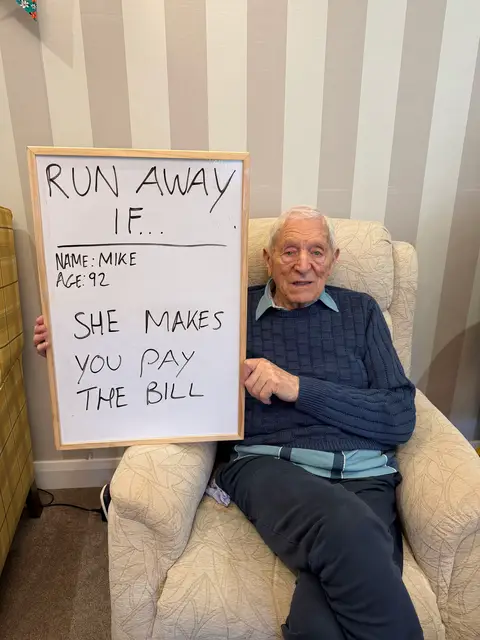 RUN AWAY
IF...
NAME: MIKE
AGE: 92
SHE MAKES
YOU PAY
THE BILL